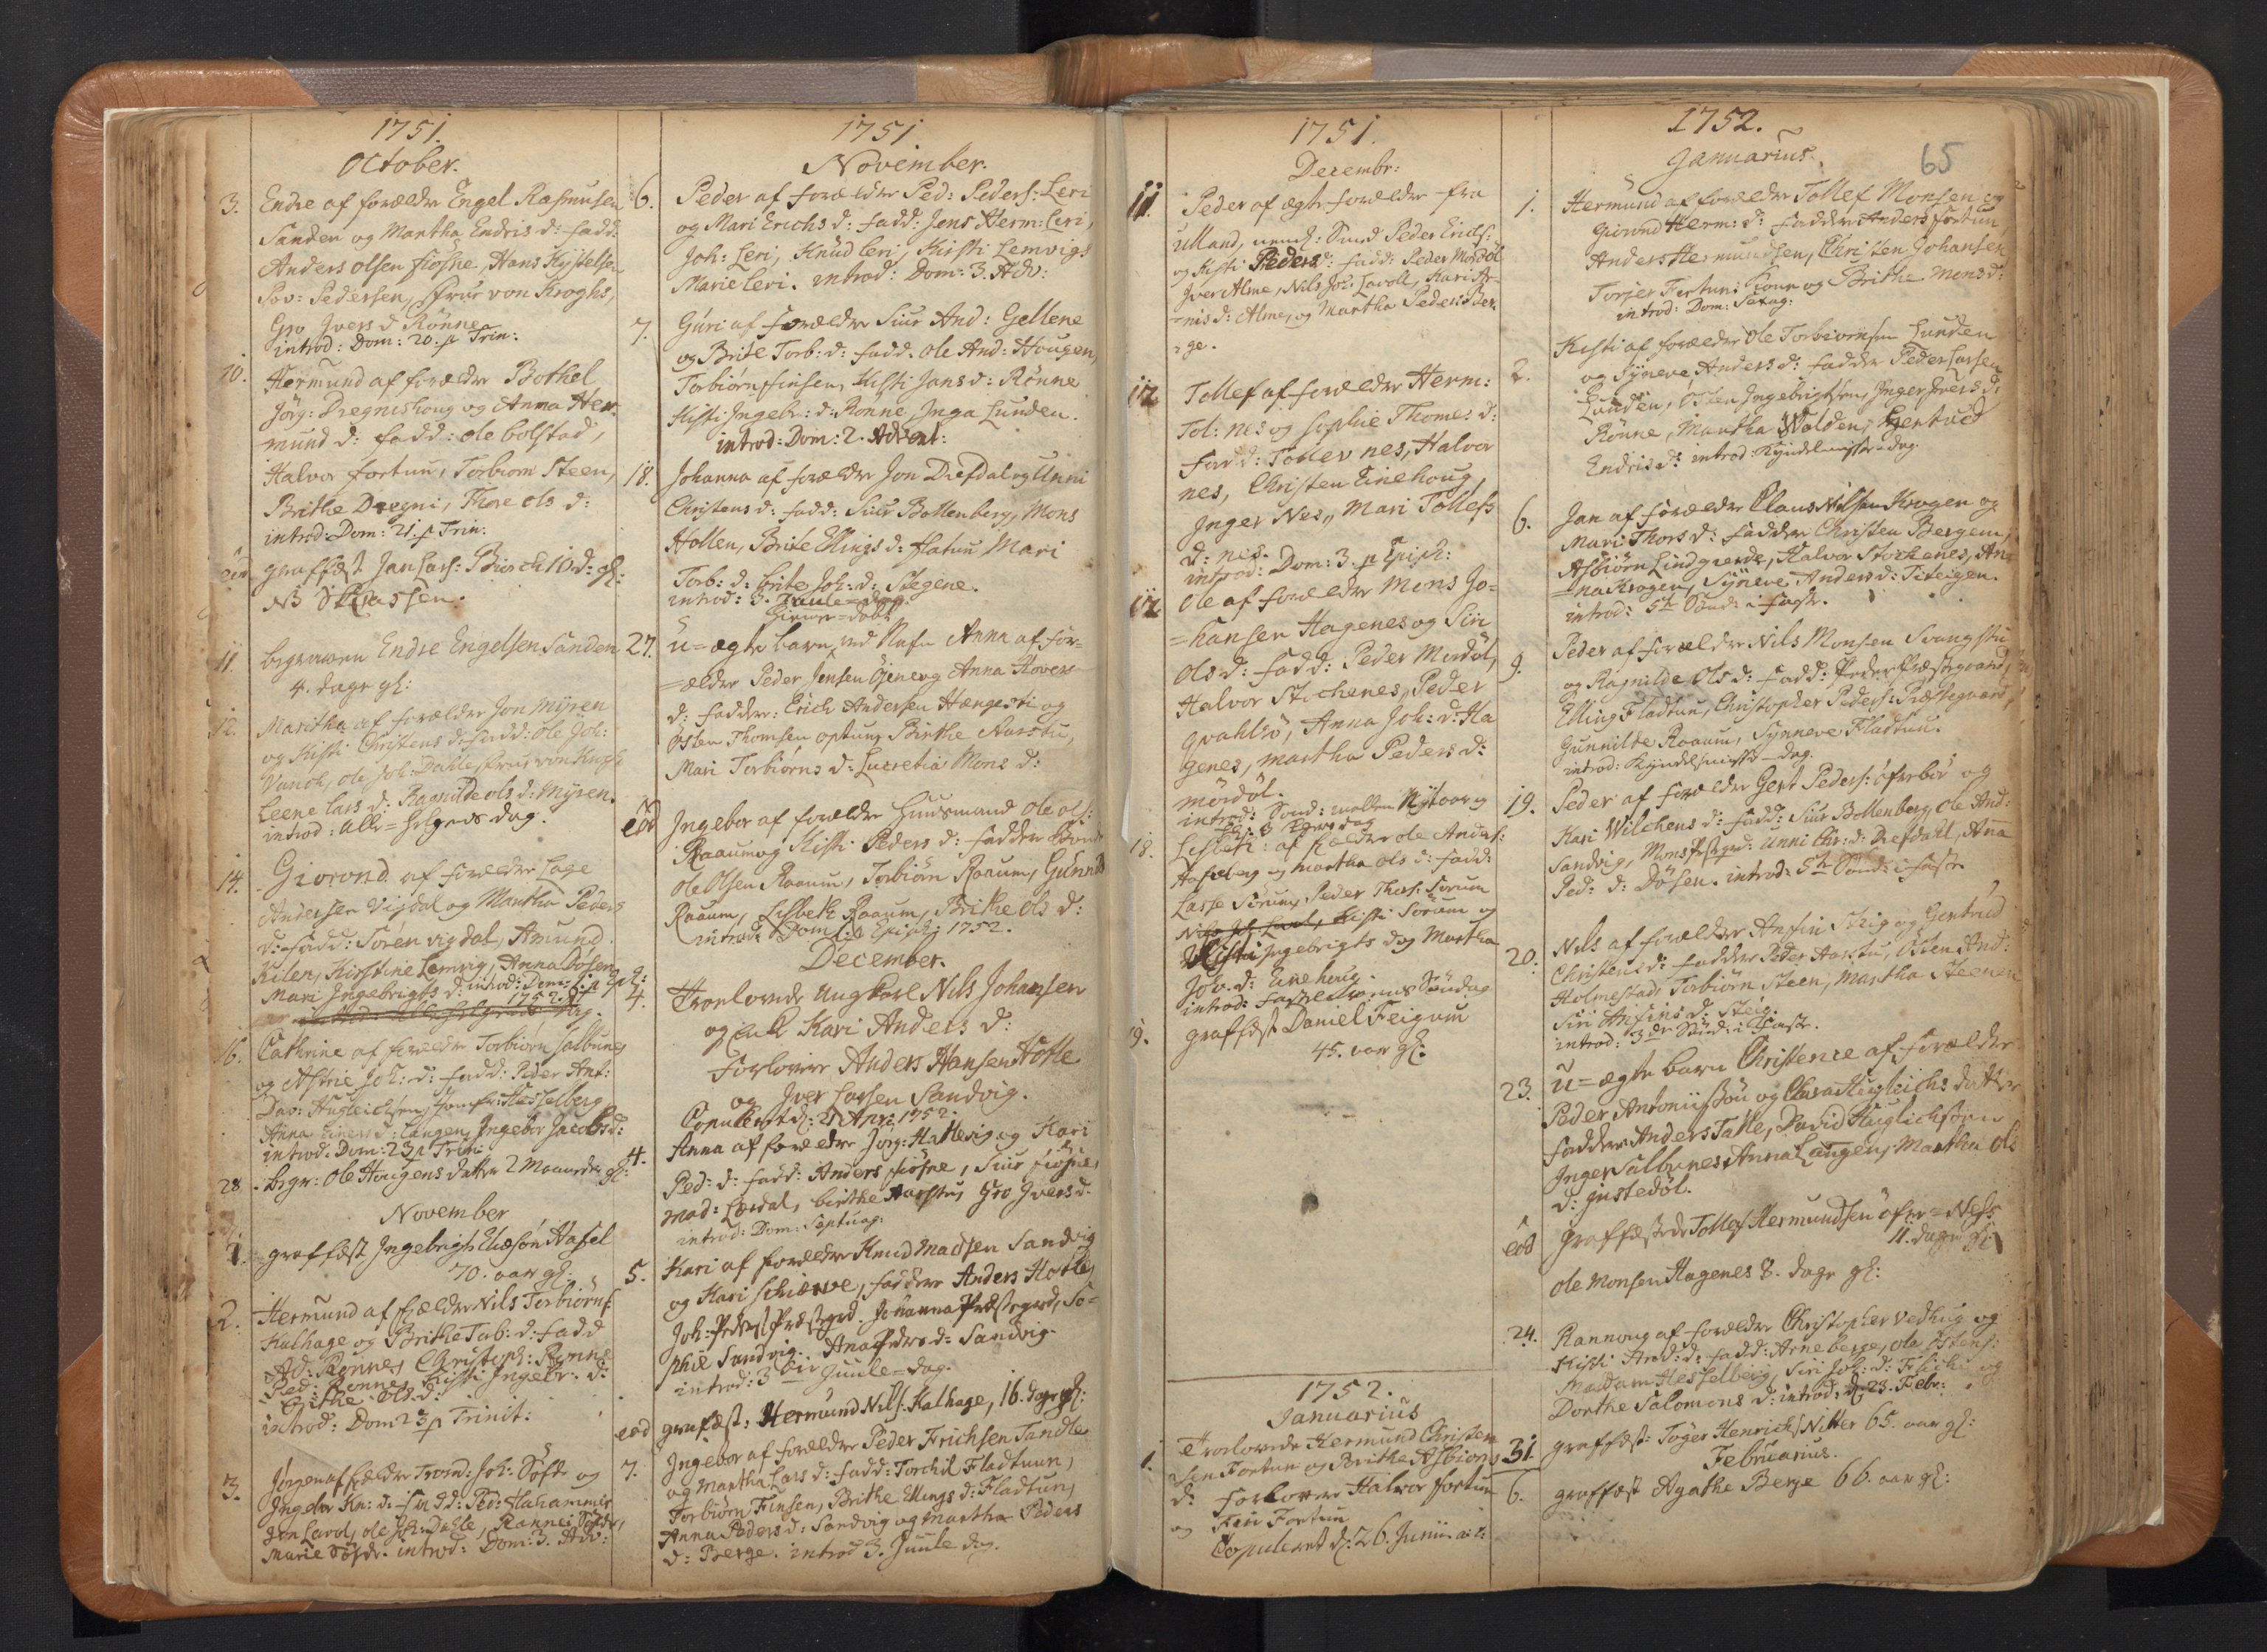 1751.
October.
3. Endre af forældre Engel Rasmussen
Sanden og Martha Endris d: fadd:
Anders Olsen fiøsne, Hans
Pov: Pedersen, frue von Kroghs,
Gro Ivers d Rønne
introd: Dom: 20. p Trin:
10. Hermund af forældre Bothel
Jørg: Dregnishoug og Anna Her-
mund d: fadd: ole bolstad,
Halvor fortun, Torbiorn Steen,
Brithe Dregni, Thore ols d:
introd: Dom: 21. p Trin:
eod graffæst Jan Lars: 10 d: gl:
NB
11. begraven Endre Engelsen Sanden
4. dage gl:
12. Maritha af forældre Jon Myren
og Kisti Christens d: fadd: ole Joh:
ole Joh: Dahle, frue von Krogh
Leene Lars d: Ragnilde ols d: Myren.
introd: Alle=helgens dag.
14. Giorond af forældre Lage
Andersen Vigdal og Martha Peders
d: fadd: Søren vigdal, Amund
Kilen, Kirstine Lemvig, Anna Døsen
Mari Ingebrigts d: introd: Dom: 1. p Epiph:
1752.
16. Cathrine af forældre Torbiørn Salbunes
og Astrie Joh: d: fadd: Peder Ant:
Dav: Hugleichsen, Jomfr: Hesselberg
Anna Einers d: Langen, Ingebor Jacobs d:
introd: Dom: 23 p Trin:
28. begr: Ole Hougens datter 2 Maaneder gl:
November
1. graffæst Ingebrigt Eliæsøn Hassel
70. aar gl:
2. Hermund af forældre Nils Torbiørns:
Kalhage og Brithe Torb: d: fadd
Ad: Rønnes, Christoph: Rønne
Ped: Rønnes, Kisti Ingebr: d:
Brithe Ols d:
introd: Dom 23 p Trinit:
3. Jørgen af forældre Trond: Joh: Søfde og
Ingebr Kn: d: fadd: Ped: Hahammer
Jon Lavol, ole Joh: Dahle, Rannei Søfde,
Marie Søfde. introd: Dom: 3. Adv:
1751
November.
6. Peder af forældre Ped: Peders: Leri
og Mari Erichs d: fadd: Jens Herm: Leri,
Joh: Leri, Knud Leri, Kisti Lemvigs
Marie Leri. introd: Dom: 3. Adv:
7. Guri af forældre Siur And: Gellene
og Brite Torb: d: fadd. ole And: Hougen,
Torbiørn finsen, Kisti Jans d: Rønne
Kisti Ingebr: d: Rønne, Inga Lunden.
introd: Dom: 2. Advent:
18. Johanna af forældre Jon Drefdal og Unni
Christens d: fadd: Siur Bollenberg, Mons
Hollen, Brite Ellings d: flatun Mari
Torb: d: brite Joh: d: Slagene.
introd: 3. Juule=dag.
27. u=ægte barn, ved Nafn Anna af for-
=ældre Peder Jensen og Anna Hovers
d: faddere: Erich Andersen Hængesti og
Østen Thomsen optun, Birthe Aarstu,
Mari Torbiørns d: Lucretia Mons d:
eod Ingebor af forældre huusmand ole ols:
Raaum og Kisti Peders d: fadder
ole Olsen Raaum, Torbiørn Raaum, Gunnild
Raaum, Lisbeth Raaum, Brithe Ols d:
introd: Dom: 1 p Epiph: 1752.
December.
4. Trolovede Ungkarl Nils Johansen
og Enk Kari Anders d:
Forlovere Anders Hansen Hofle
og Iver Larsen Sandvig.
Copulerit d: 21 Apr: 1752.
4. Anna af forældre Jørg: Hattevig og Kari
Ped: d: fadd: Anders fiøsne, Siur fiøsne,
mad: Lærdal, birthe Aarstu, Gro Ivers d.
introd: Dom: Septuag:
5. Kari af forældre Knud Madsen Sandvig
og Kari Schierve, faddere Anders Hofle,
Joh: Peders: Præstegrd. Johanna Præstegrd, So=
phie Sandvig. Ana Peders d: Sandvig.
introd: 3die Juule=dag.
eod grafæst: Hermund Nils: Kalhage, 16. dage gl:
7. Ingebor af forældre Peder Frichsen Sandle
og Martha Lars d: fadd: Torchil Fladtuun,
Torbiørn Finsen, Brithe Ellings d: Fladtun,
Anna Peders d: Sandvig og Martha Peders
d: Berge. introd 3. Juule dag.
1751.
Decembr:
11. Peder af ægte forældre fra
ulland, nemL: Smed Peder Erichs:
og Kisti Peders d: fadd: Peder Mordøl
Iver Alme, Nils Joh: Lavoll, Kari Ar-
-nis d: Alme, og Martha Peders Ber-
=ge.
12 Tollef af forældre Herm:
Tol: nes og Sophie Thomes d:
Fadd: Tollev nes, Halvor
nes, Christen Einehoug,
Inger Nes, Mari Tollefs
d: nes.
introd: Dom: 3. p Epiph:
12 Ole af forældre Mons Jo=
=hansen Hagenes og Siri
Ols d: fadd: Peder Mordøl,
Halvor Stichenes, Peder
Qvahlsø, Anna Joh: d: Ha
genes, Martha Peders d:
mordøl.
introd: Sønd: mellem Nytaar og
18. Lisbeth: af forældre ole Anders:
Hasseberg og martha ols d: fadd:
Lasse Sørum, Peder Thos: Sørum
Kisti Sørum og
Kisti Ingebrigts d og Martha
Joh. d: Einehoug.
introd: fastelavens Søndag
19. graffæst Daniel Feigum
45. aar gl:
1752.
Januarius
1. Trolovede Hermund Christen
sen Fortun og Brithe Asbiorns
d: Forlovere Halvor fortun
og Finn Fortun
Copuleret d: 26. Junii a: c:
1752.
Januarius.
65
1. Hermund af forældre Tollef Monsen og
Giorond Herm: d: faddere Anders fortun,
Anders Hermundsen, Christen Johansen
Torjer Fortuns Kone og Brithe Mons d:
introd: Dom: Sexag:
2. Kisti af forældre Ole Torbiornsen Lunden
og Syneve Anders d: faddere Peder Larsen
Lunden, Østen Ingebrigtsen, Inger Ivers d:
Rønne, Martha Wolden, Gertrud
Endris d: introd: Kyndelmisse=dag.
6. Jan af forældre Claus Nilsen Krogen og
Mari Thors d: Faddere Christen Bergem,
Asbiørn Lindgierde, Halvor Stichenes, An-
=na Krogen, Syneve Anders d: Titeigen.
introd: 5te Sønd: i faste.
9. Peder af forældre Nils Monsen Svangstu
og Ragnilde Ols d: fadd: Peder Præstegaard,
Elling Fladtun, Christopher Peders: Præstegaard,
Gunnilde Raaum, Synneve Fladtun.
introd: Kyndelsmisse=dag.
19. Peder af forældre Gert Peders: øfrebø og
Kari Wilchens d: fadd: Siur Bollenberg, Ole And:
Sandvig, Mons Præstegrd: Unni Chr: d: Drefdahl, Anna
Ped: d: Døsen. introd: 5te Sønd: i faste
20. Nils af forældre Anfin Steig og Gertrud
Christens d: fadder Peder Aarstu, Østen And:
Holmestad, Torbiørn Steen, Martha Steenen
Siri Anfins d: Steig.
introd: 3de Sønd: i Faste.
23. u=ægte barn Christence af forældre
Peder Antoniisøn og Clara Hugleichs datter
faddere Anders Talle, David Huglichsøn
Inger Salbunes, Anna Langen, Martha Ols
d: justedøl.
eod graffæstede Tollef Hermundsen øfre=Ness
11. dage gl:
Ole Monsen Hagenes 8. dage gl:
24. Rannoug af forældre Christopher Vedhug og
Kisti And: d: fadd: Arne berge, ole Østens:
Madam Hesselberg, Siri Joh: d: og
Dorthe Salomons d: introd: d: 23. Febr:
31 graffæst: Tøger Henrichs: Nitter 65. aar gl:
Februarius.
6. graffæst Agathe Berge 66. aar gl: